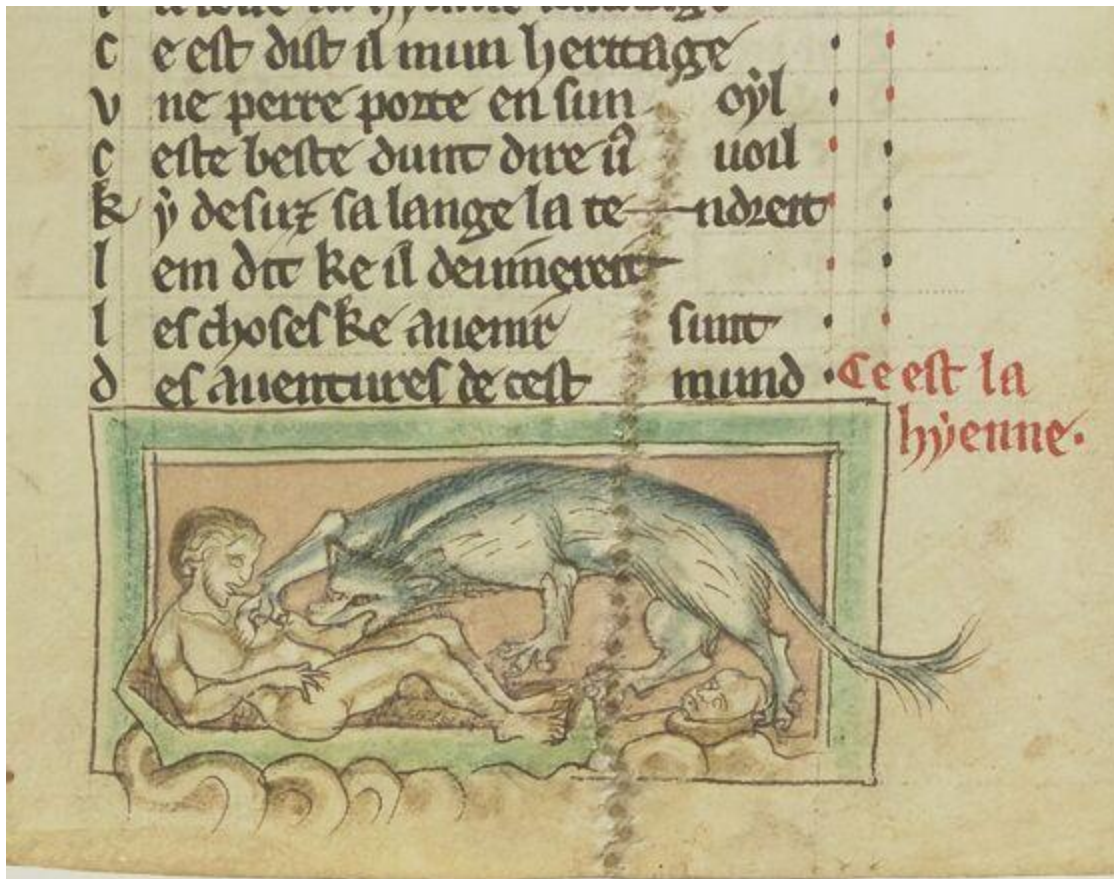 c e est dist il mun heritage
v ne perre porte en sun oẏl
c este beste dunt dire uoil
k ẏ desuz sa lange la tendreit
l em dit ke il deuinereit
l es choses ke auenir sunt
d es auentures de cest mund
Ce est la
hẏenne.